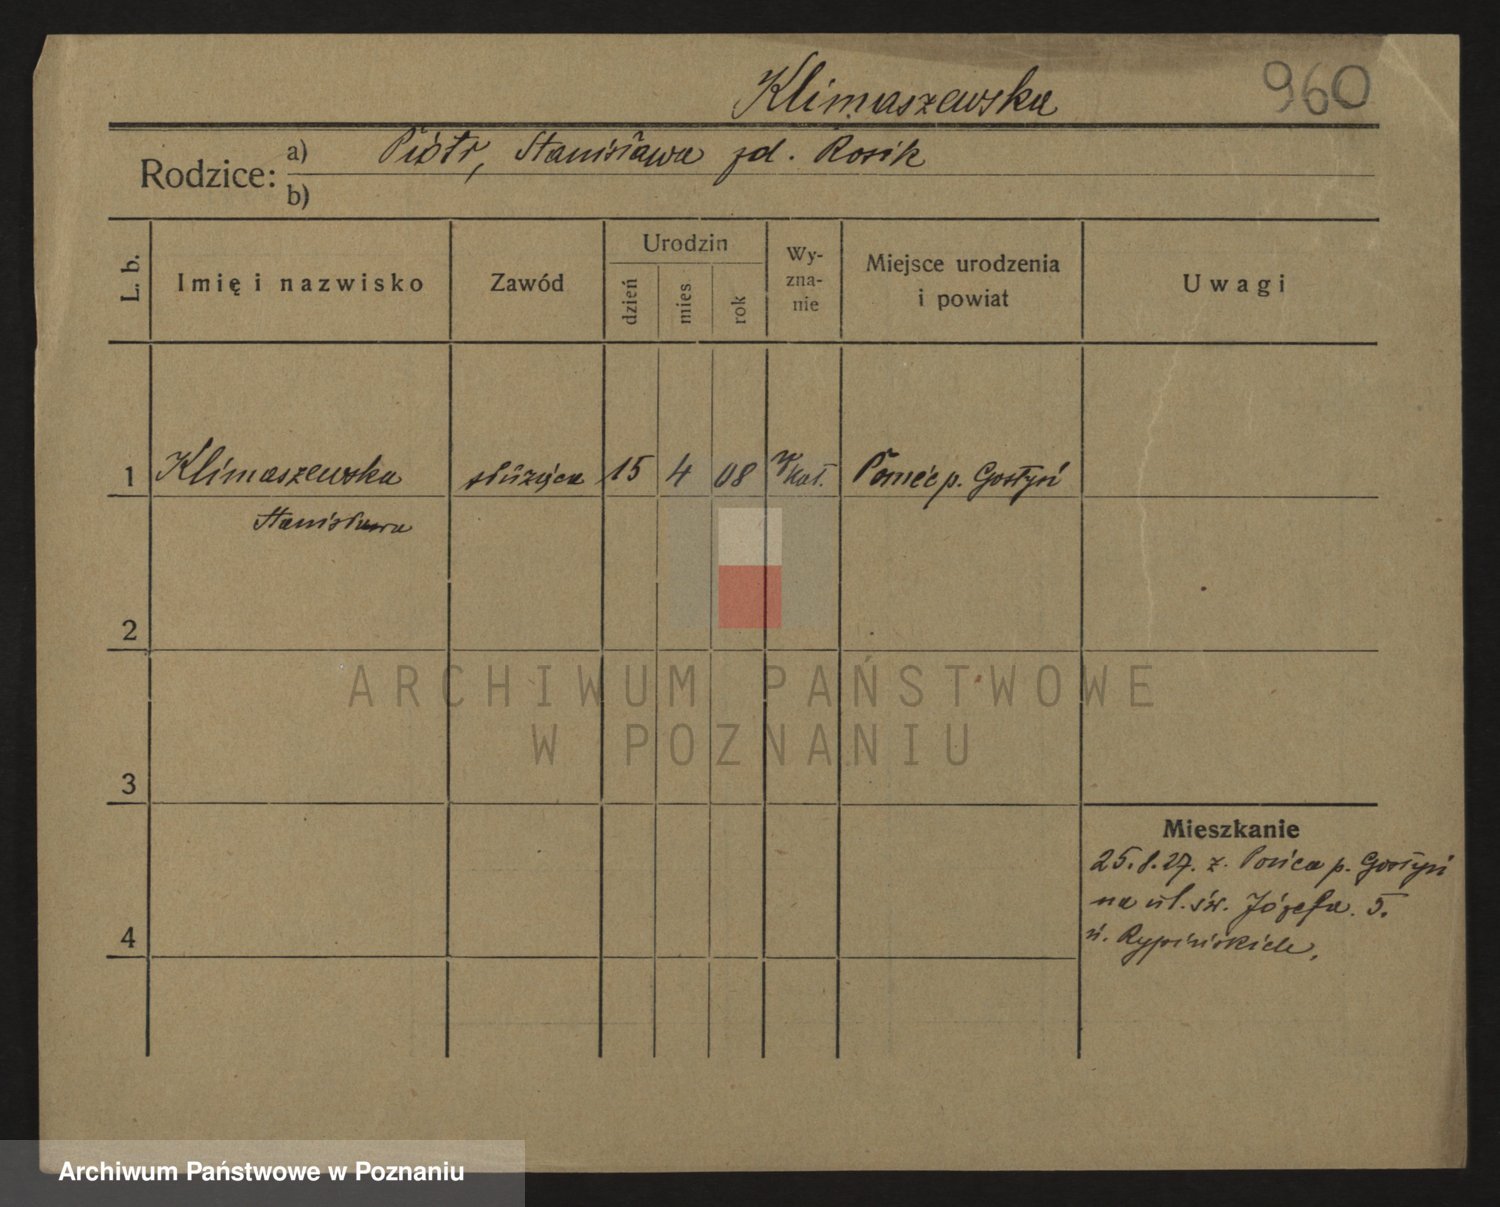 Klimaszewska
960
Rodzice:
a) Piotr, Stanisława zd. Rosik
b)
L. b.
Imię i nazwisko
Zawód
Urodzin
dzień
mies.
rok
Wy-
zna-
nie
Miejsce urodzenia
i powiat
Uwagi
1 Klimaszewska służąca 15 4 08 Poniec p. Gostyń
Stanisława
2
ARCHIWUM PAŃSTWOWE
W POZNANIU
3
Mieszkanie
25.8.27. z. Pońca p. Gostyń
na ul. św. Józefa. 5.
u. Rypińskich.
4
Archiwum Państwowe w Poznaniu